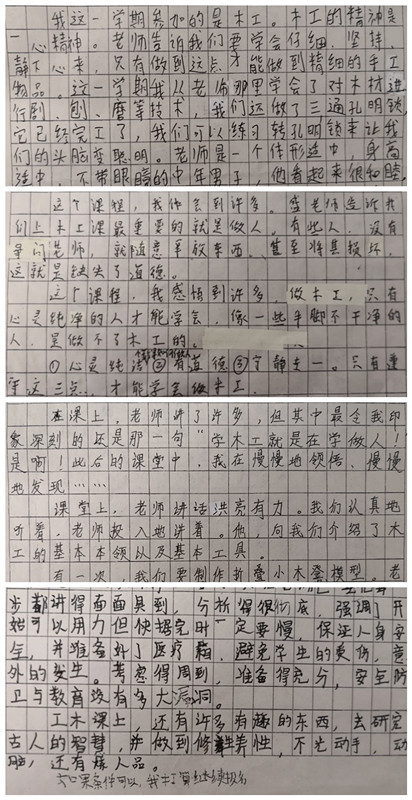 我这一学期参加的是木工。木工的精神是
一心精神。老师告诉我们要学会仔细,坚持,
静下心来,只有做到这点才能做到精细的手工
物品。这一学期我从老师那里学会了对木材进
行刷、刨、磨等技术,我们还做了三通孔明锁
它已经完工了,我们可以练习转孔明锁来让我
们的头脑变聪明。老师是一个体形适中,身高
适中,不带眼睛的中年男子,他看起来很和睦。
这个课程,我体会到许多。盛老师告诉我
们上木工课最重要的就是做人。有些人,没有
寻问老师,就随意乱放东西,甚至将其损坏,
这就是缺失了道德。
这个课程,我感悟到许多,做木工,只有
心灵纯净的人才能学会,像一些手脚不干净的
人,是做不了木工的。
①心灵纯洁②有道德③宁静专一。只有遵
守这三点,才能学会做木工.
在课上,老师讲了许多,但其中最令我印
象深刻的还是那一句“学木工就是在学做人!”
是啊!此后的课堂中,我在慢慢地领悟、慢慢
地发现……
课堂上,老师讲话洪亮有力。我们认真地
听着,老师投入地讲着。他,向我们介绍了木
工的基本本领以及基本工具。
有一次,我们要制作折叠小木凳模型。老
步都讲得面面具到,分析得很彻底,强调了开
始可以用力但快锯完时一定要慢,保证人身安
全,并准备好了医疗箱,避免学生的受伤,意
外的发生。考虑得周到,准备得充分,安全防
卫与教育没有多大漏洞。
工木课上,还有许多有趣的东西,去研究
古人的智慧,并做到修身养性,不光动手,动
脑,还有炼人品。
如果条件可以,我打算继续报名